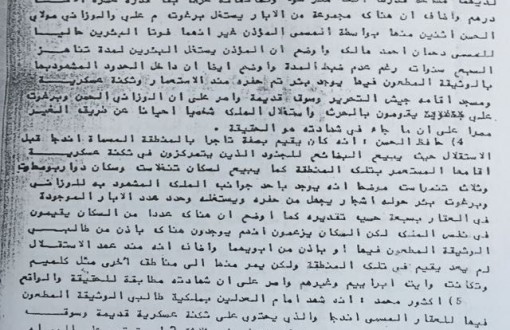 درهم واضاف ان هناك مجموعة من الابار يستغل برغوت م علي والوزاني مولاي
الحسن اثنين منها بواسطة المسمى المؤذن غير انهما فوتا البئرين حاليا
للمسمى دحمان احمد مالكه واوضح ان المؤذن يستغل البئرين لمدة تناهز
السبع سنوات رغم عدم ضبطه المدة واوضح ايضا ان داخل الحدود المشهود بها
بالوثيقة المطعون فيها يوجد بئر تم حفره منذ الاستعمار وثكنة عسكرية
ومسجد اقامه جيش التحرير وسوق قديمة واصر على ان الوزاني الحسن وبرغوت
علي يقومون بالحرث واستغلال الملك شخصيا احيانا عن طريق الغير
مصرا على ان ما جاء في شهادته هو الحقيقة .
4) حافظ الحسن : انه كان يقيم بصفة تاجرا بالمنطقة المسماة اندجا قبل
الاستقلال حيث يبيع البضائع للجنود الذين يتمركزون في ثكنة عسكرية
اقامها المستعمر بتلك المنطقة كما يبيع لسكان تنغلاست وسكان دوار بومطوت
وثلاث تندراست موضحا انه يوجد باحد جوانب الملك المشهود به للوزاني
وبرغوت بئر حوله اشجار يجهل من حفره ويستغله وحدد عدد الابار الموجودة
في العقار بسبعة حسب تقديره كما اوضح ان هناك عددا من السكان يقيمون
في نفس الملك لكن السكان يزعمون انهم يوجدون هناك باذن من طالبي
الوثيقة المطعون فيها او باذن من ابويهما واضاف انه منذ عهد الاستقلال
لم يعد يقيم في تلك المنطقة ولكن يمر منها الى مناطق اخرى مثل كلميم
وتكانت وايت ابراهيم وغيرهم واصر على ان شهادته مطابقة للحقيقة والواقع
5) اكثور محمد : انه شهد امام العدلين بملكية طالبي الوثيقة المطعون
فيها للعقار المسمى اندجا والذي يحتوي على ثكنة عسكرية قديمة وسوق